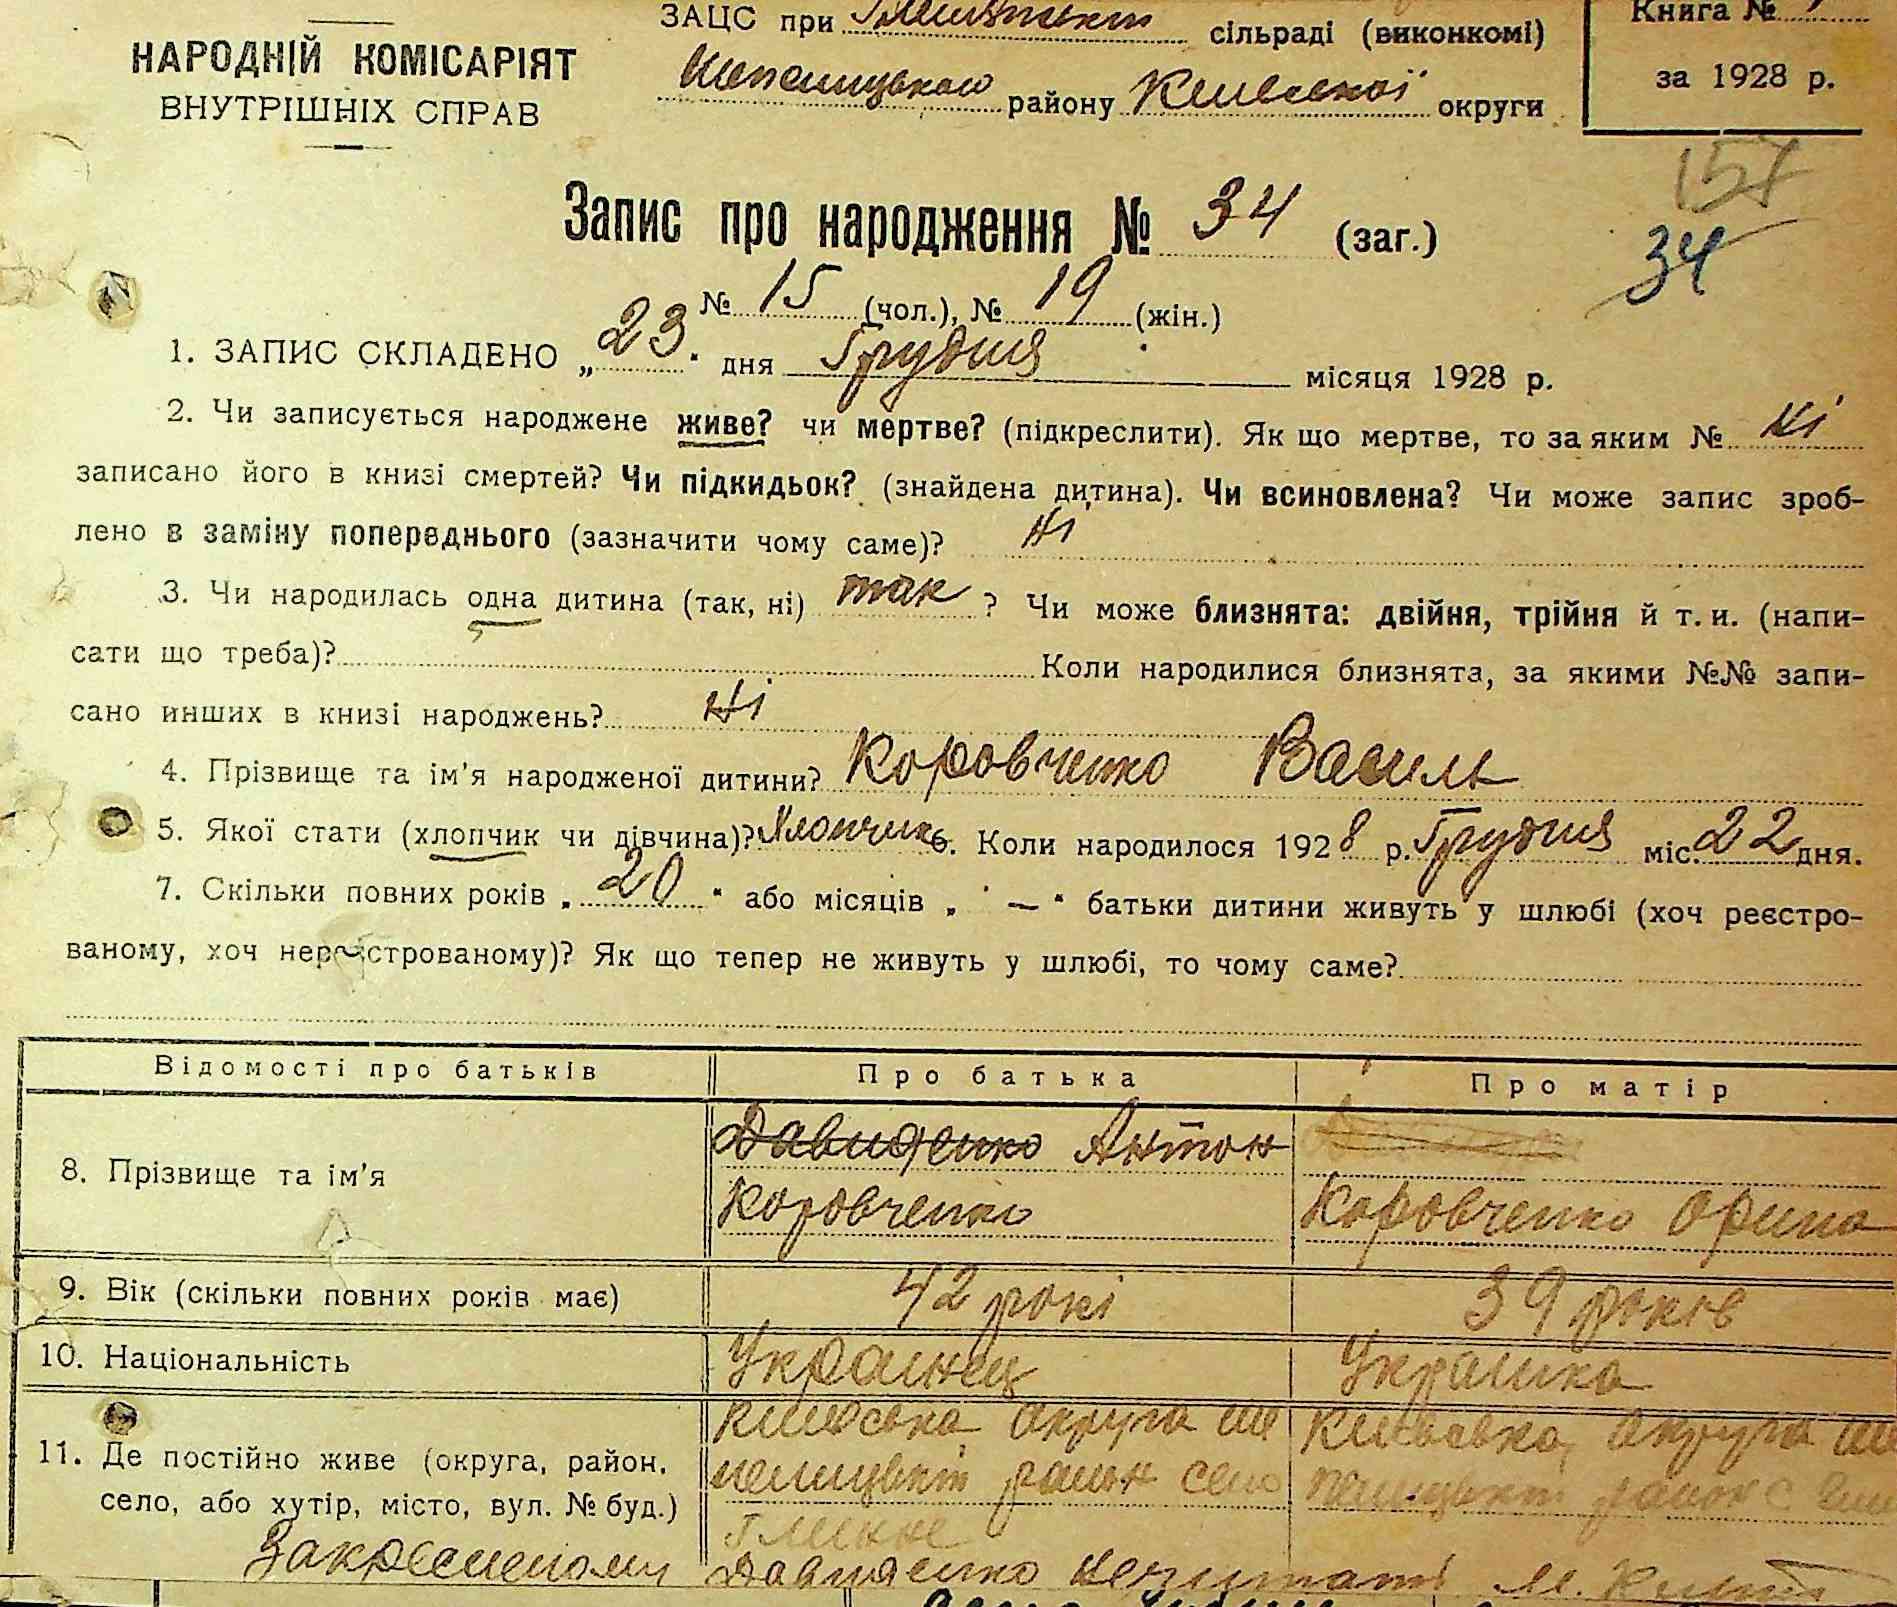 ЗАЦС при сільраді (виконкомі)
Книга №
НАРОДНІЙ КОМІСАРІЯТ
ВНУТРІШНІХ СПРАВ
району Київської округи
за 1928 р.
157
Запис про народження № 34 (заг.)
34
№ 15 (чол.), № 19 (жін.)
1. ЗАПИС СКЛАДЕНО „23“ дня Грудня місяця 1928 р.
2. Чи записується народжене живе? чи мертве? (підкреслити). Як що мертве, то за яким № Ні
записано його в книзі смертей? Чи підкидьок? (знайдена дитина). Чи всиновлена? Чи може запис зроб-
лено в заміну попереднього (зазначити чому саме)? Ні
3. Чи народилась одна дитина (так, ні) так ? Чи може близнята: двійня, трійня й т. и. (напи-
сати що треба)? Коли народилися близнята, за якими №№ запи-
сано инших в книзі народжень? Ні
4. Прізвище та ім'я народженої дитини? Коровченко Василь
5. Якої стати (хлопчик чи дівчина)? Хлопчик 6. Коли народилося 1928 р. Грудня міс. 22 дня.
7. Скільки повних років „20“ або місяців „—“ батьки дитини живуть у шлюбі (хоч реєстро-
ваному, хоч нереєстрованому)? Як що тепер не живуть у шлюбі, то чому саме?
Відомості про батьків Про батька Про матір
8. Прізвище та ім'я Давиденко Антон
Коровченко Коровченко Орина
9. Вік (скільки повних років має) 42 рокі 39 років
10. Національність Украинец Украинка
11. Де постійно живе (округа, район, село, або хутір, місто, вул. № буд.)
Київська округа Ши
пелицький район село
Глинке
Київська округа Ши
пелицький район
Закресленому Давиденко нечитати